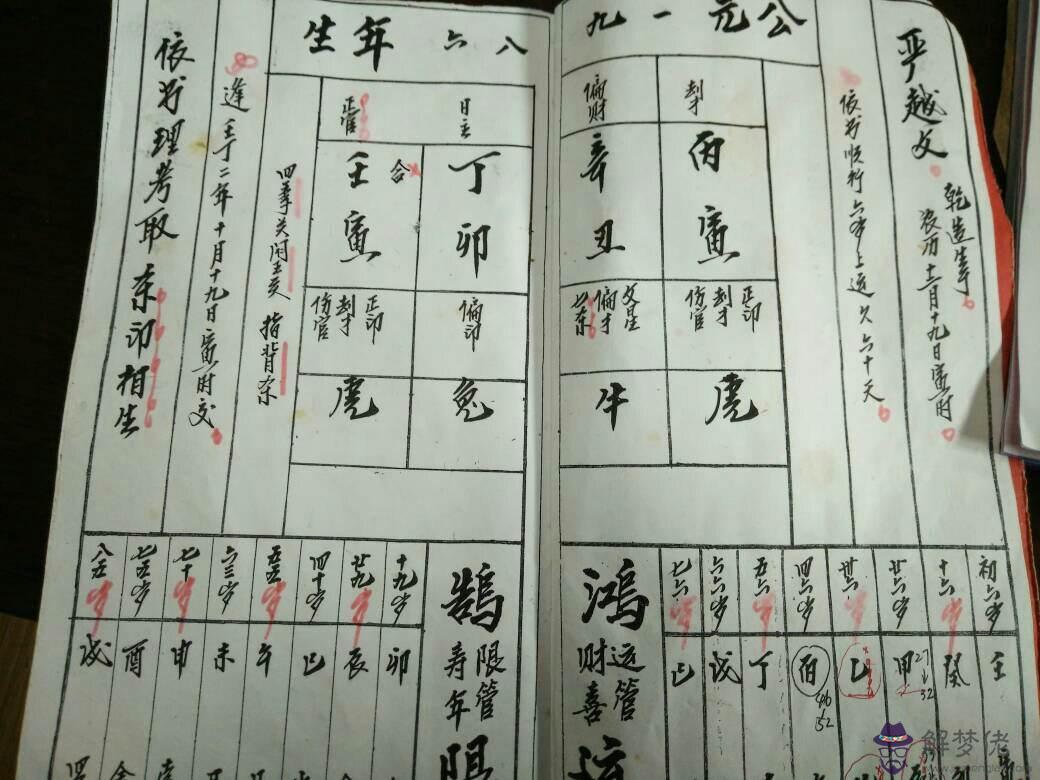 公元一九八六年生
严越文
乾造生于
农历十二月十九日寅时
依书顺行六岁上运欠六十天
劫才
偏财
日主
正官
丙寅
辛丑
丁卯
壬寅
合
正印
劫才
伤官
文星
偏才
七杀
偏印
正印
劫才
伤官
虎
牛
兔
虎
四季关 闭王关 指背杀
逢壬丁二年十月十九日寅时交
依书理考取杀印相生
初六岁
十六岁
廿六岁
卅六岁
四六岁
五六岁
六六岁
七六岁
壬
癸
甲
乙
丙
丁
戊
己
27
32
46
52
鸿
运管财喜
运
鹄
限管寿年
限
十九岁
廿九岁
四十岁
五五岁
六三岁
七十岁
七五岁
八五岁
卯
辰
巳
午
未
申
酉
戌
解梦佬